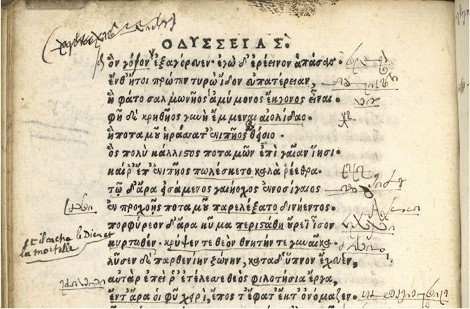 ΟΔΥΣΣΕΙΑΣ
Ὃν γόνον ἐξαγόρευεν· ἐγὼ δ' ἐρέεινον ἁπάσας.
ἔνθ' ἤτοι πρώτην τυρὼ ἴδον εὐπατέρειαν,
ἣ φάτο σαλμωνῆος ἀμύμονος ἔκγονος εἶναι·
φῆ δὲ κρηθῆος γυνὴ ἔμμεναι αἰολίδαο·
ἣ ποταμοῦ ἠράσατ' ἐνιπῆος θείοιο
ὃς πολὺ κάλλιστος ποταμῶν ἐπὶ γαῖαν ἵησι·
καί ῥ' ἐπ' ἐνιπῆος πωλέσκετο καλὰ ῥέεθρα·
τῷ δ' ἄρα εἰσάμενος γαιήοχος ἐννοσίγαιος
ἐν προχοῇς ποταμοῦ παρελέξατο δινήεντος·
πορφύρεον δ' ἄρα κῦμα περιστάθη οὔρεϊ ἶσον
et il cacha le Dieu et
la mortelle
κυρτωθὲν· κρύψεν δὲ θεὸν θνητήν τε γυναῖκα·
λῦσεν δὲ παρθενίην ζώνην, κατὰ δ' ὕπνον ἔχευεν·
αὐτὰρ ἐπεί ῥ' ἐτέλεσσε θεὸς φιλοτήσια ἔργα,
ἔν τ' ἄρα οἱ φῦ χειρὶ, ἔπος τ' ἔφατ' ἔκ τ' ὀνόμαζεν·